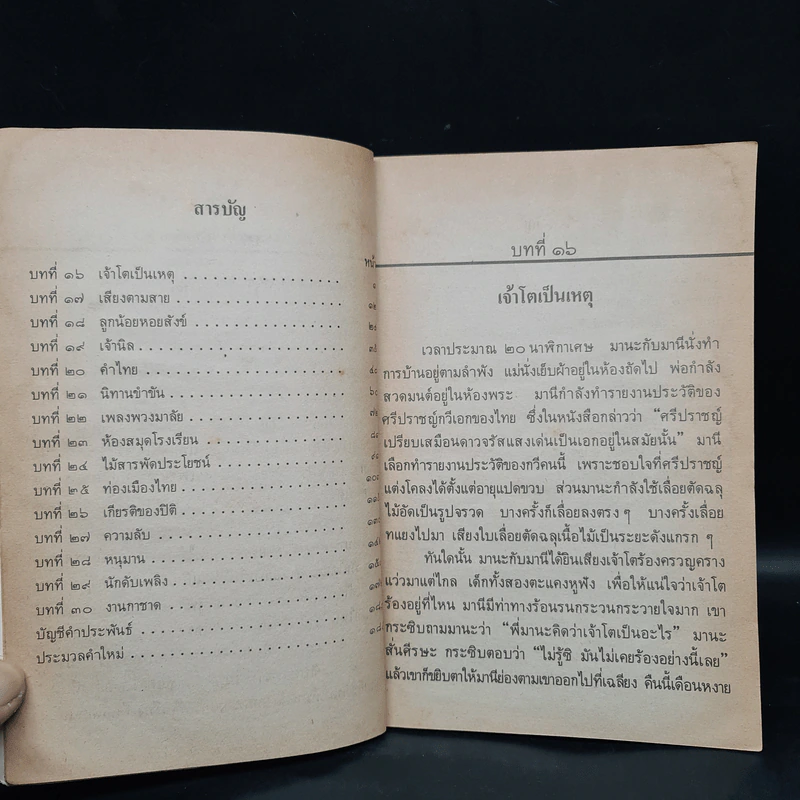 สารบัญ
หน้า
บทที่ ๑๖ เจ้าโตเป็นเหตุ ๑
บทที่ ๑๗ เสียงตามสาย ๑๒
บทที่ ๑๘ ลูกน้อยหอยสังข์
บทที่ ๑๙ เจ้านิล
บทที่ ๒๐ คำไทย
บทที่ ๒๑ นิทานขำขัน
บทที่ ๒๒ เพลงพวงมาลัย
บทที่ ๒๓ ห้องสมุดโรงเรียน
บทที่ ๒๔ ไม้สารพัดประโยชน์
บทที่ ๒๕ ท่องเมืองไทย
บทที่ ๒๖ เกียรติของปิติ
บทที่ ๒๗ ความลับ
บทที่ ๒๘ หนุมาน
บทที่ ๒๙ นักดับเพลิง
บทที่ ๓๐ งานกาชาด
บัญชีคำประพันธ์
ประมวลคำใหม่
บทที่ ๑๖
เจ้าโตเป็นเหตุ
เวลาประมาณ ๒๐ นาฬิกาเศษ มานะกับมานีนั่งทำ
การบ้านอยู่ตามลำพัง แม่นั่งเย็บผ้าอยู่ในห้องถัดไป พ่อกำลัง
สวดมนต์อยู่ในห้องพระ มานีกำลังทำรายงานประวัติของ
ศรีปราชญ์กวีเอกของไทย ซึ่งในหนังสือกล่าวว่า “ศรีปราชญ์
เปรียบเสมือนดาวจรัสแสงเด่นเป็นเอกอยู่ในสมัยนั้น” มานี
เลือกทำรายงานประวัติของกวีคนนี้ เพราะชอบใจที่ศรีปราชญ์
แต่งโคลงได้ตั้งแต่อายุแปดขวบ ส่วนมานะกำลังใช้เลื่อยตัดฉลุ
ไม้อัดเป็นรูปจรวด บางครั้งก็เลื่อยลงตรง ๆ บางครั้งเลื่อย
ทแยงไปมา เสียงใบเลื่อยตัดฉลุเนื้อไม้เป็นระยะดังแกรก ๆ
ทันใดนั้น มานะกับมานีได้ยินเสียงเจ้าโตร้องครวญคราง
แว่วมาแต่ไกล เด็กทั้งสองตะแคงหูฟัง เพื่อให้แน่ใจว่าเจ้าโต
ร้องอยู่ที่ไหน มานีมีท่าทางร้อนรนกระวนกระวายใจมาก เขา
กระซิบถามมานะว่า “พี่มานะคิดว่าเจ้าโตเป็นอะไร” มานะ
สั่นศีรษะ กระซิบตอบว่า “ไม่รู้ซิ มันไม่เคยร้องอย่างนี้เลย”
แล้วเขาก็ขยิบตาให้มานีย่องตามเขาออกไปที่เฉลียง คืนนี้เดือนหงาย